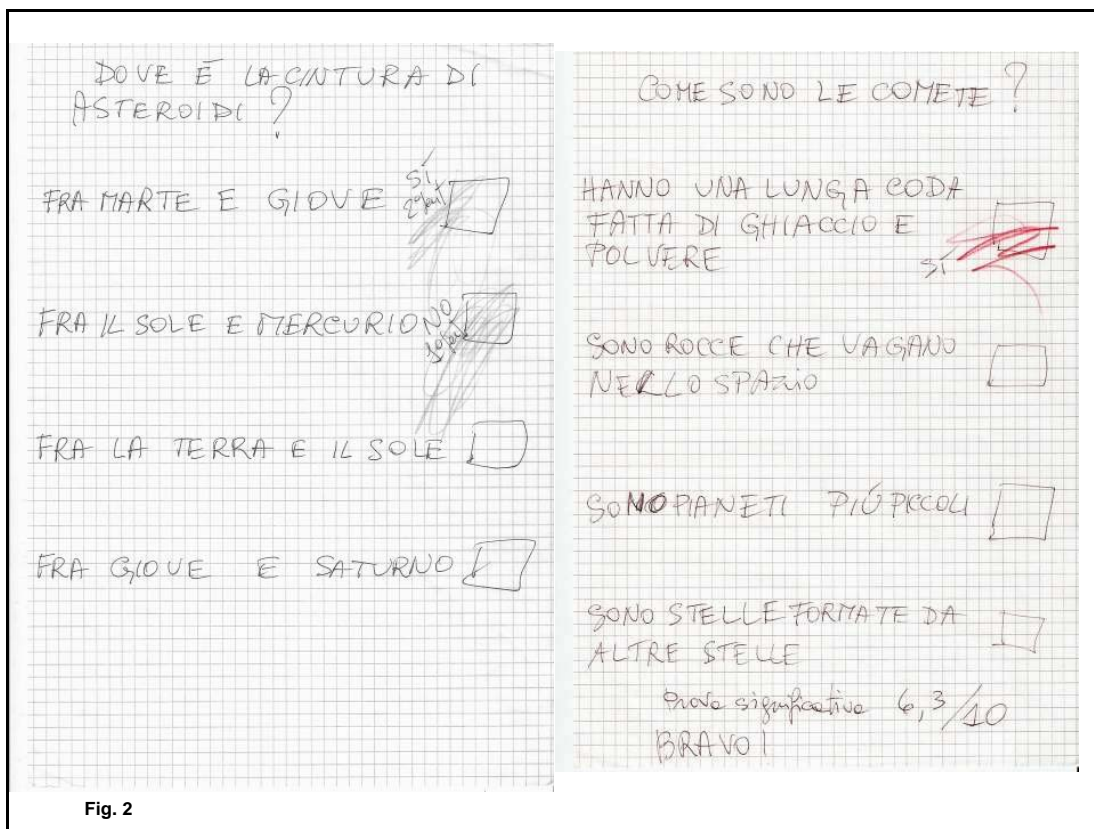 DOVE È LA CINTURA DI
ASTEROIDI ?
FRA MARTE E GIOVE
SÍ
2°
FRA IL SOLE E MERCURIO
NO
1°
FRA LA TERRA E IL SOLE
FRA GIOVE E SATURNO
COME SONO LE COMETE ?
HANNO UNA LUNGA CODA
FATTA DI GHIACCIO E
POLVERE
SÍ
SONO ROCCE CHE VAGANO
NELLO SPAZIO
SONO PIANETI PIÚ PICCOLI
SONO STELLE FORMATE DA
ALTRE STELLE
Prova significativa 6,3/10
BRAVO!
Fig. 2